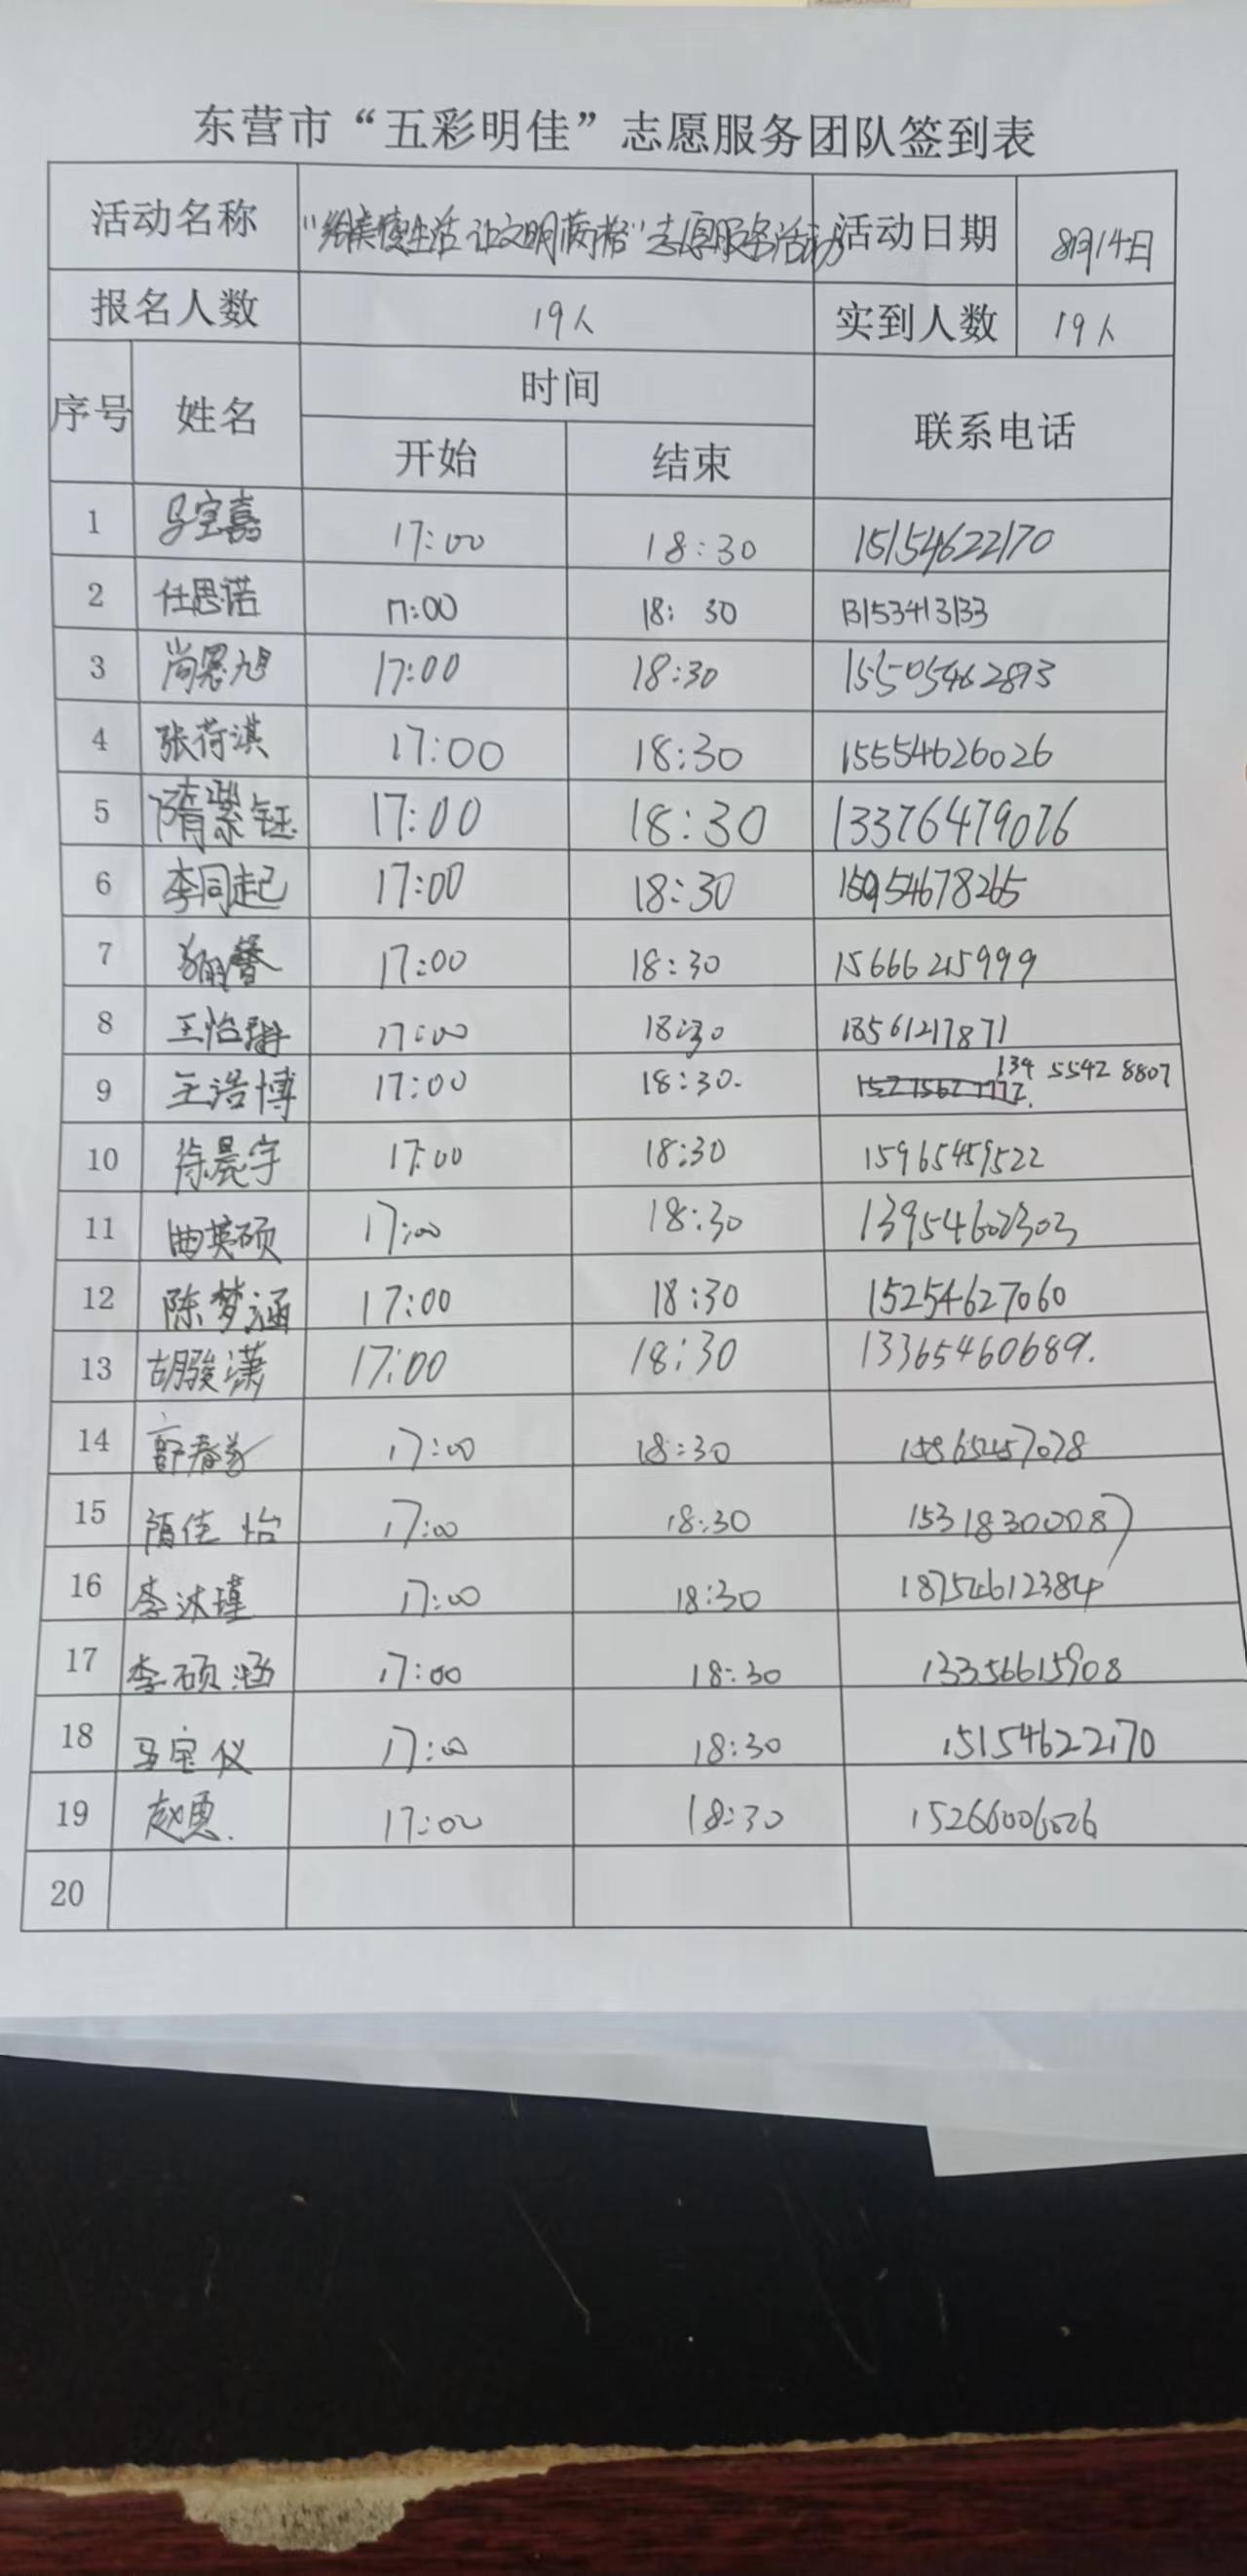 东营市“五彩明佳”志愿服务团队签到表
活动名称 生活 让文明 志愿服务活动 活动日期 8月14日
报名人数 19人 实到人数 19人
序号 姓名 时间 联系电话
开始 结束
1 马宝嘉 17:00 18:30 15154622170
2 任思诺 17:00 18:30 13153413133
3 尚恩旭 17:00 18:30 15505462893
4 张荷淇 17:00 18:30 15554626026
5 隋紫钰 17:00 18:30 13376479076
6 李同起 17:00 18:30 15954678265
7 17:00 18:30 15666215999
8 王怡 17:00 18:30 18561217871
9 王浩博 17:00 18:30. 134 5542 8807
10 徐晨宇 17:00 18:30 15965459522
11 曲英硕 17:00 18:30 13954602303
12 陈梦涵 17:00 18:30 15254627060
13 胡骏潇 17:00 18:30 13365460689.
14 17:00 18:30
15 隋佳怡 17:00 18:30 15318300087
16 李沐瑾 17:00 18:30 18754612384
17 李硕涵 17:00 18:30 13356615908
18 马宝仪 17:00 18:30 15154622170
19 赵勇. 17:00 18:30 15266006026
20